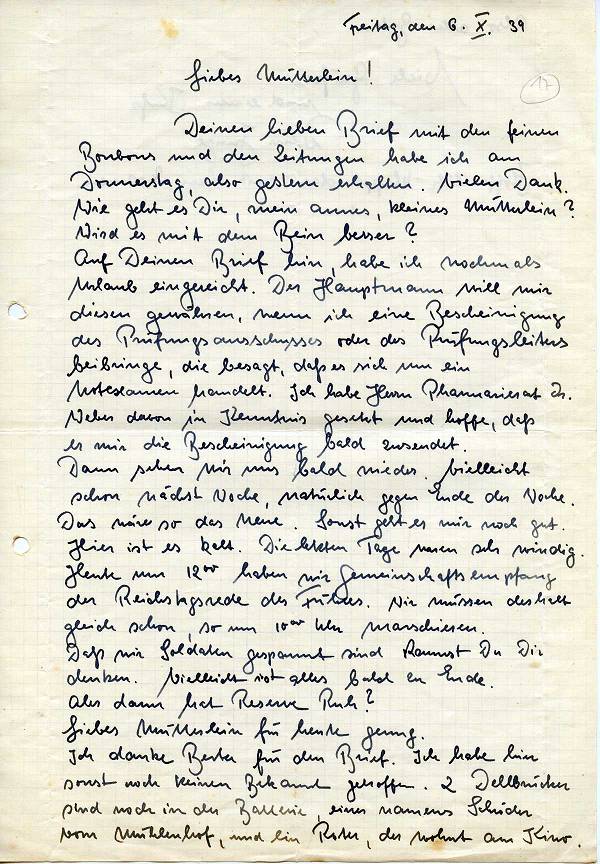 Freitag, den 6. X. 39
Liebes Mütterlein!
17
Deinen lieben Brief mit den feinen
Bonbons und den Zeitungen habe ich am
Donnerstag, also gestern erhalten. Vielen Dank.
Wie geht es Dir, mein armes, kleines Mütterlein?
Wird es mit dem Bein besser?
Auf Deinen Brief hin, habe ich nochmals
Urlaub eingereicht. Der Hauptmann will mir
diesen gewähren, wenn ich eine Bescheinigung
des Prüfungsausschusses oder des Prüfungsleiters
beibringe, die besagt, daß es sich um ein
Notexamen handelt. Ich habe Herrn Pharmazierat Dr.
Weber davon in Kenntnis gesetzt und hoffe, daß
er mir die Bescheinigung bald zusendet.
Dann sehen wir uns bald wieder. Vielleicht
schon nächst Woche, natürlich gegen Ende der Woche.
Das wäre so das Neue. Sonst geht es mir noch gut.
Hier ist es kalt. Die letzten Tage waren sehr windig.
Heute um 12⁰⁰ haben wir Gemeinschaftsempfang
der Reichstagsrede des Führers. Wir müssen deshalb
gleich schon, so um 10⁰⁰ Uhr marschieren.
Daß wir Soldaten gespannt sind kannst Du Dir
denken. Vielleicht ist alles bald zu Ende.
Aber dann hat Reserve Ruh?
Liebes Mütterlein für heute genug.
Ich danke Berta für den Brief. Ich habe hier
sonst noch keinen Bekannt getroffen. 2 Dellbrücker
sind noch in der Batterie, einer namens
vom Mühlenhof, und ein, der wohnt am Kino.